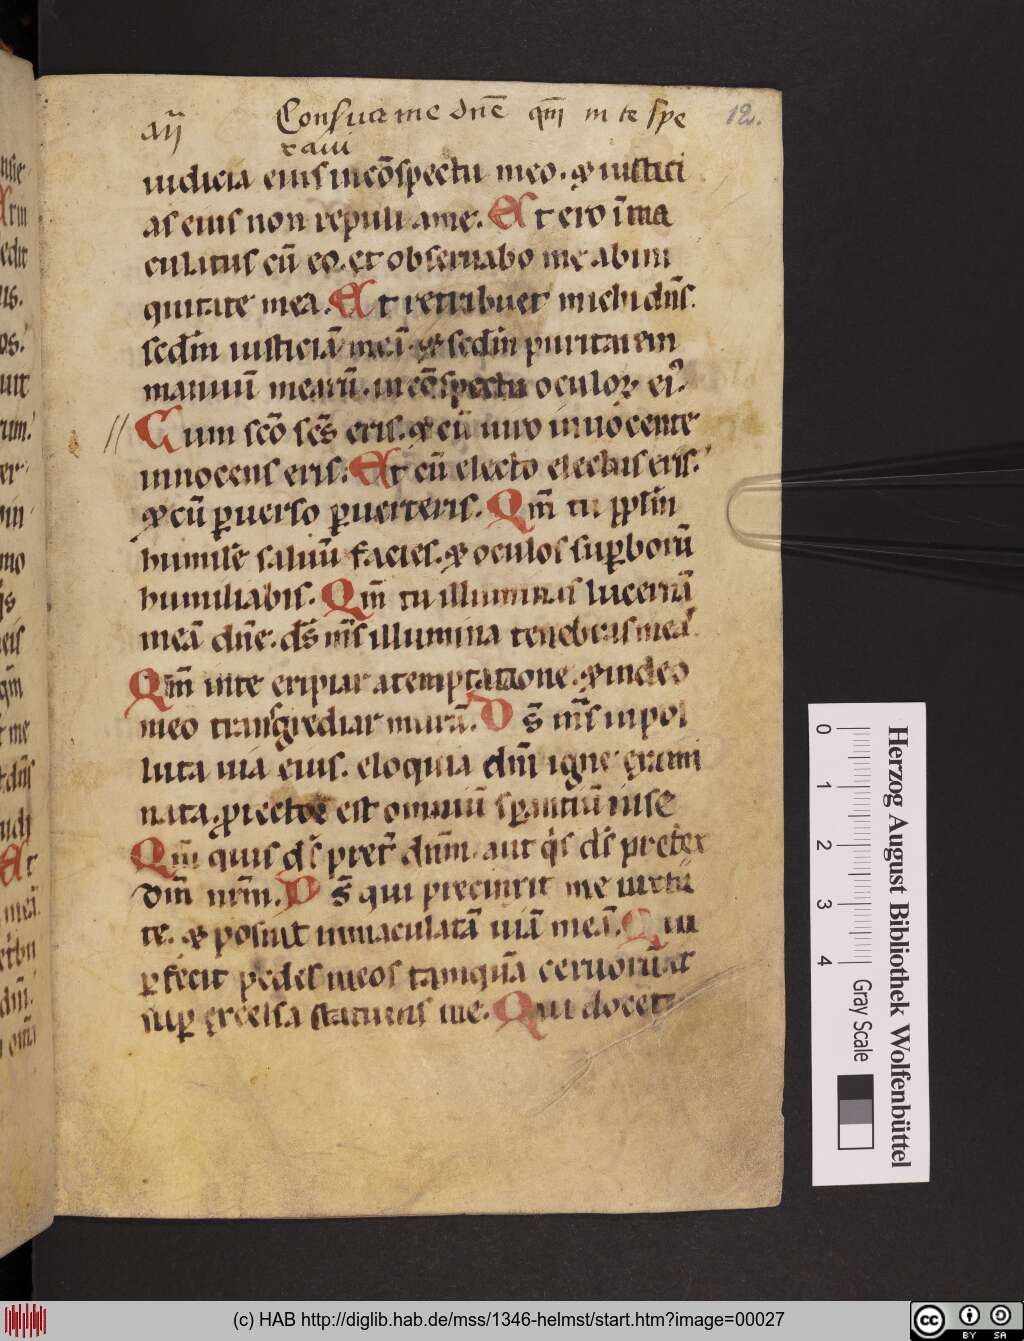 añ Conserua me dñe qm̄ in te spe 12.
raui
iudicia eius in cōspectu meo. & iustici
as eius non repuli a me. Et ero īma
culatus cū eo. et obseruabo me ab ini
quitate mea. Et retribuet michi dn̄s.
scdm̄ iusticiā meā & scdm̄ puritatem
manuū mearū. in cōspectu oculoꝝ eiꝰ.
Cum scō scs̄ eris. & cū uiro innocente
innocens eris. Et cū electo electus eris.
& cū ꝑuerso ꝑuerteris. Qm̄ tu pp̄lm̄
humilē saluū facies. & oculos suꝑborū
humiliabis. Qm̄ tu illuminas lucernā
meā dn̄e. ds̄ ms̄ illumina tenebras meas.
Qm̄ in te eripiar a temptatione. & in deo
meo transgrediar murū. Ds̄ ms̄ inpol
luta uia eius. eloquia dn̄i igne exami
nata. ꝓtector est omniū sꝑantiū in se
Qm̄ quis ds̄ pret̄ dn̄m. aut qͥs ds̄ preter
dm̄ nrm̄. Ds̄ qui precinxit me uirtu
te. & posuit immaculatā uiā meā. Qui
ꝑfecit pedes meos tamquā ceruorū. et
suꝑ excelsa statuens me. Qui docet
0 1 2 3 4
Gray Scale
Herzog August Bibliothek Wolfenbüttel
(c) HAB http://diglib.hab.de/mss/1346-helmst/start.htm?image=00027
cc BY SA